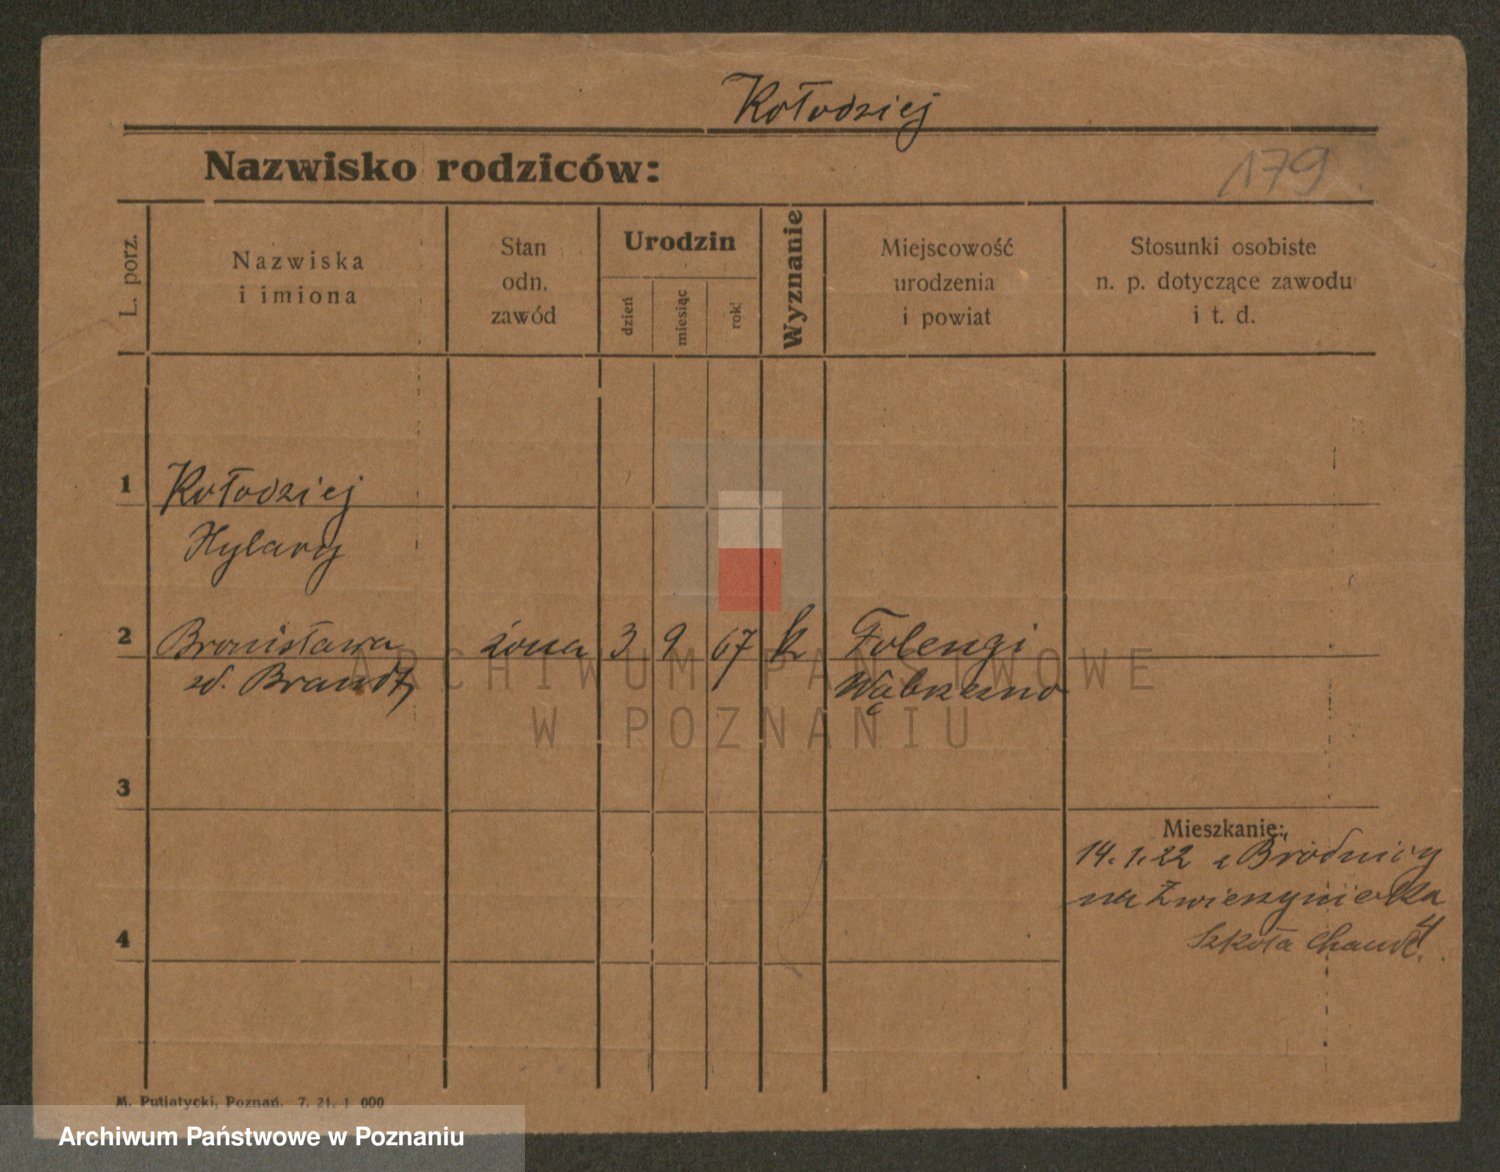 Kołodziej
Nazwisko rodziców:
179
L. porz.
Nazwiska
i imiona
Stan
odn.
zawód
Urodzin
dzień
miesiąc
rok
Wyznanie
Miejscowość
urodzenia
i powiat
Stosunki osobiste
n. p. dotyczące zawodu
i t. d.
1
Kołodziej
Hylary
2
Bronisława żona 3 9 67 k Folengi
zd. Brandt Wąbrzezno
ARCHIWUM PAŃSTWOWE
W POZNANIU
3
Mieszkanie:
14.1.22 z Brodnicy
na Zwierzyniecka
4
Szkoła
M. Putiatycki, Poznań. 7. 21. 1 000
Archiwum Państwowe w Poznaniu